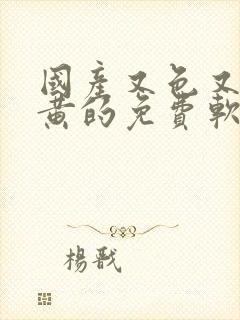 國產又色又
黃的免費軟
楊戩